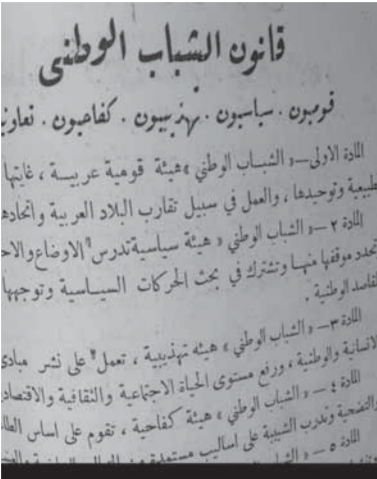 قانون الشباب الوطني
قوميون . سياسيون . تهذيبيون . كفاحيون . تعاونيـ
المادة الاولى — « الشباب الوطني » هيئة قومية عربية ، غايتها
طبيعية وتوحيدها ، والعمل في سبيل تقارب البلاد العربية واتحادها
المادة ٢ — « الشباب الوطني » هيئة سياسية تدرس الاوضاع والاحـ
تحدد موقفها منها وتشترك في بحث الحركات السياسية وتوجيهها
المقاصد الوطنية .
المادة ٣ — « الشباب الوطني » هيئه تهذيبية ، تعمل على نشر مبادئ
الانسانية والوطنية ، ورفع مستوى الحياة الاجتماعية والثقافية والاقتصاد
المادة ٤ — « الشباب الوطني » هيئة كفاحية ، تقوم على اساس الطا
والتضحية وتدرب الشبيبة على اساليب مستمدة من
المادة ٥ — « الشباب